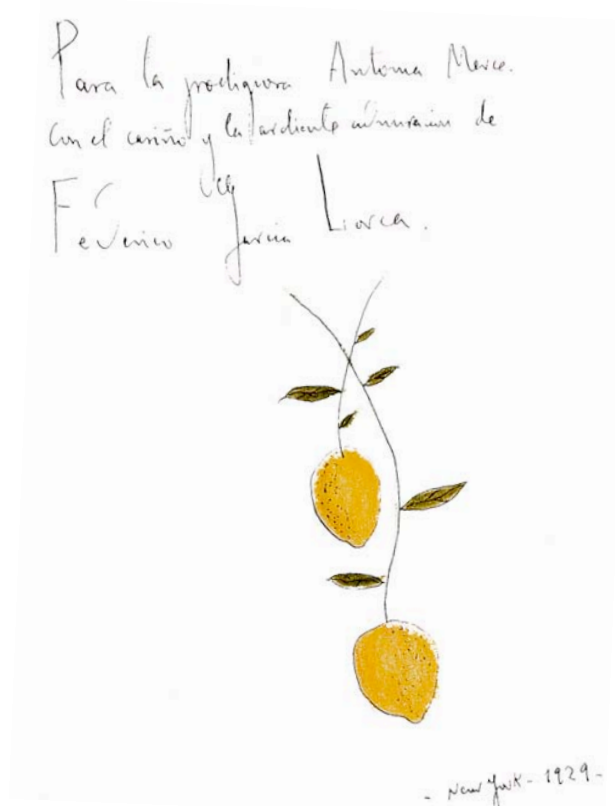 Para la prodigiosa Antonia Mercé.
Con el cariño y la ardiente admiración de
Federico García Lorca.
- New York - 1929 -